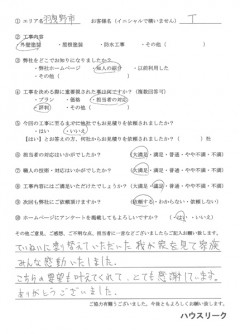 ① エリア名 羽曳野市 お客様名（イニシャルで構いません） T
② 工事内容
外壁塗装 ・屋根塗装 ・防水工事 ・その他（ ）
③ 弊社をどこでお知りになりましたか？
・弊社ホームページ ・知人の紹介 ・以前利用した
・その他（ ）
④ 工事を決める際に重要視された事は何ですか？（複数回答可）
・プラン ・価格 ・担当者の対応
・評判 ・その他（ ）
（ はい ・ いいえ ）
⑥ 担当者の対応はいかがでしたか？ （大満足・満足・普通・やや不満・不満）
⑦ 職人の技術・対応はいかがでしたか？ （大満足・満足・普通・やや不満・不満）
⑧ 工事内容にはご満足いただけましたか？ （大満足・満足・普通・やや不満・不満）
⑨ 次回も弊社にご依頼頂けますか？ （依頼する・わからない・依頼しない）
⑩ ホームページにアンケートを掲載してもよろしいですか？ （はい・いいえ）
ていねいに塗り替えていただいた我が家を見て家族
みんな感動いたしました。
こちらの要望も叶えてくれて、とても感謝しています。
ありがとうございました。
ハウスリーク